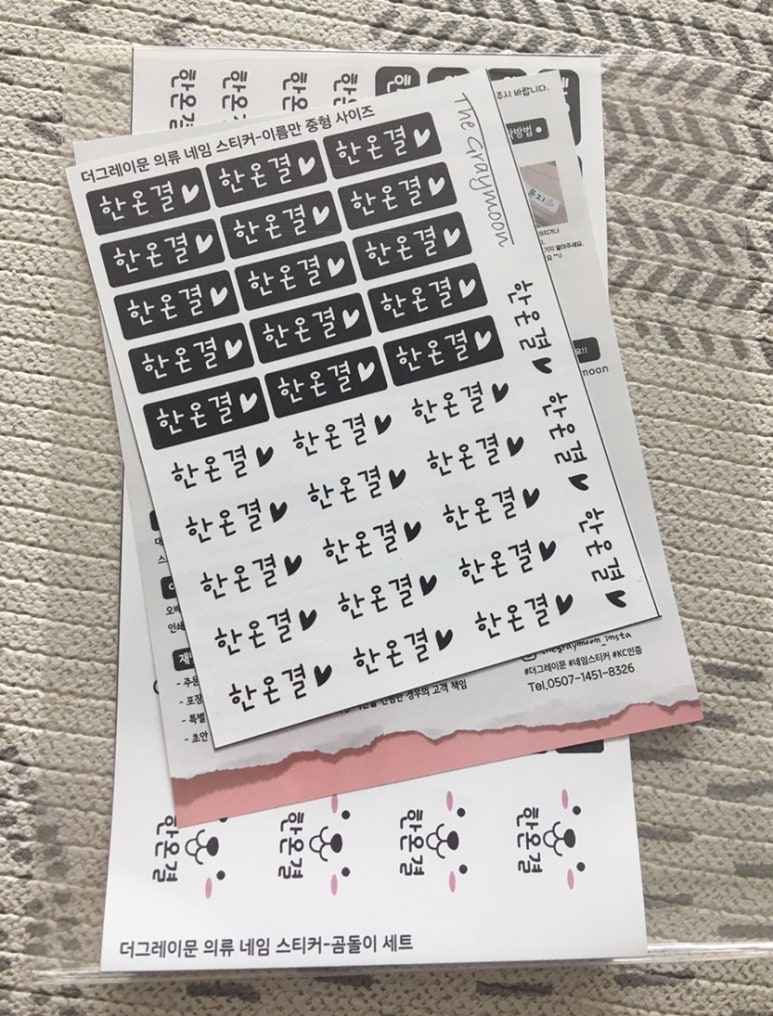 한온결 한온결 한온결 한온결
더그레이문 의류 네임 스티커-이름만 중형 사이즈
The Graymoon
한온결 한온결 한온결
한온결 한온결 한온결
한온결 한온결 한온결
한온결 한온결 한온결
한온결 한온결 한온결
한온결 한온결 한온결
한온결 한온결 한온결
한온결 한온결 한온결
한온결 한온결 한온결
한온결 한온결 한온결
한온결
한온결
한온결
주시 바랍니다.
thegraymoon_insta
#더그레이문 #네임스티커 #KC인증
Tel.0507-1451-8326
경우의 고객 책임
- 주문
- 포장
- 특별
- 초안
한온결 한온결 한온결 한온결
더그레이문 의류 네임 스티커-곰돌이 세트